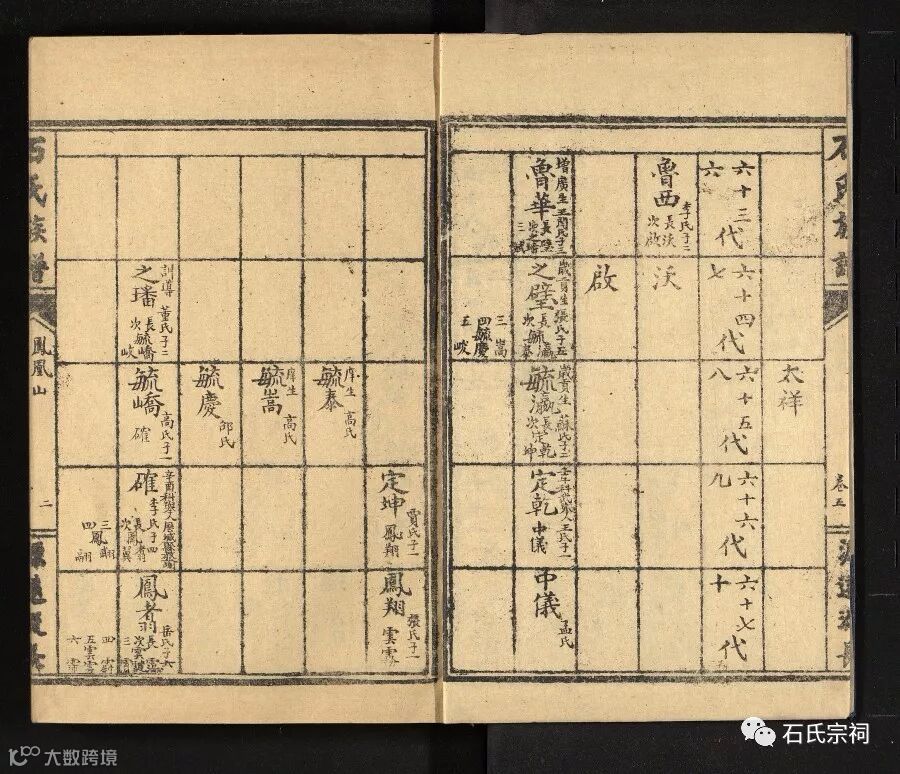 石氏族譜
卷五
源遠流長
太祥
六十三代
六
六十四代
七
六十五代
八
六十六代
九
六十七代
十
魯西
李氏子二
長沃
次啟
沃
啟
增廣生
魯華
歲貢生張氏子五
之璧
長毓瀛
次毓泰
三嵩
四毓慶
五峻
歲貢生
毓瀛
蘇氏子二
長定乾
次定坤
定乾
王氏子一
中儀
中儀
孟氏
定坤
賈氏子一
鳳翔
鳳翔
張氏子一
雲霧
庠生
毓泰
高氏
庠生
毓嵩
高氏
毓慶
邰氏
訓導
之璠
董氏子二
長毓嶠
次峻
毓嶠
高氏子一
確
確
李氏子四
長鳳翥
次鳳翼
三鳳翺
四翮
鳳翥
岳氏子六
石氏族譜
鳳凰山
二
源遠流長
石氏宗祠
大数跨境